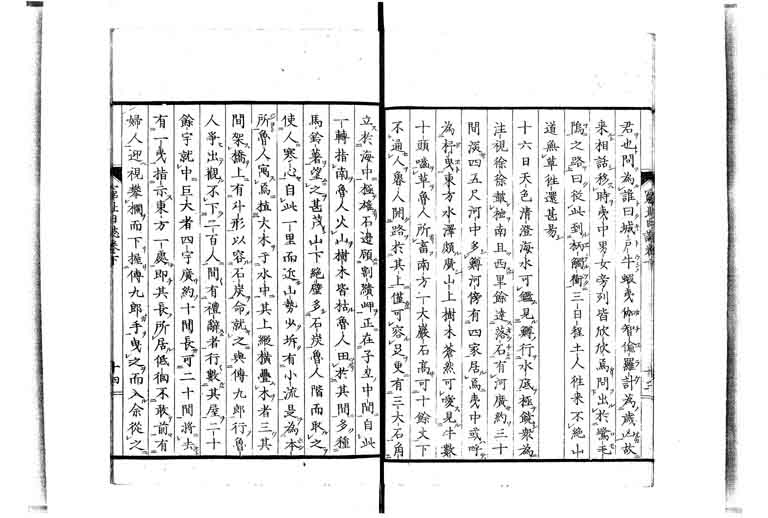 君也問為誰曰城戸牛蝦曳
来相話移時曳中男女旁列皆欣欣為問出於鶯毛
之路曰従此到
三日程土人往来不絶山
道無草往還甚易
十六日天色清澄海水可鑑見鱒行水底極饒衆為
注視徐徐
南且西里餘達落石有河廣約三十
間深四五尺河中多鱒河傍有四家居焉曳中或呼
為
曳東方水澤頗廣山上樹木蒼然可
見牛數
十頭嚙草魯人所畜南方一大巖石高可十餘丈下
不通人魯人開路於其上僅可容足更有三大石角
立於海中極雄石邉
正在子立中間自此
一轉指南魯人火山樹木皆枯魯人田於其間多種
馬鈴薯望之甚茂山下絶壁多石炭魯人階而取之
使人寒心自此一里而近山勢少拆有小流是為本
所魯人寓焉植大木于水中其上縱横疊木者三其
間架橋上有斗形以容石炭命就之與傳九郎行魯
人爭出觀不下二百人間有禮辭者行數其屋二十
餘宇就中巨大者四宇廣約十間長可二十間將去
有一曳指示東方一處即其長所居低徊不敢前有
婦人迎視攀欄而下握傳九郎手曳之而入余從之
十四